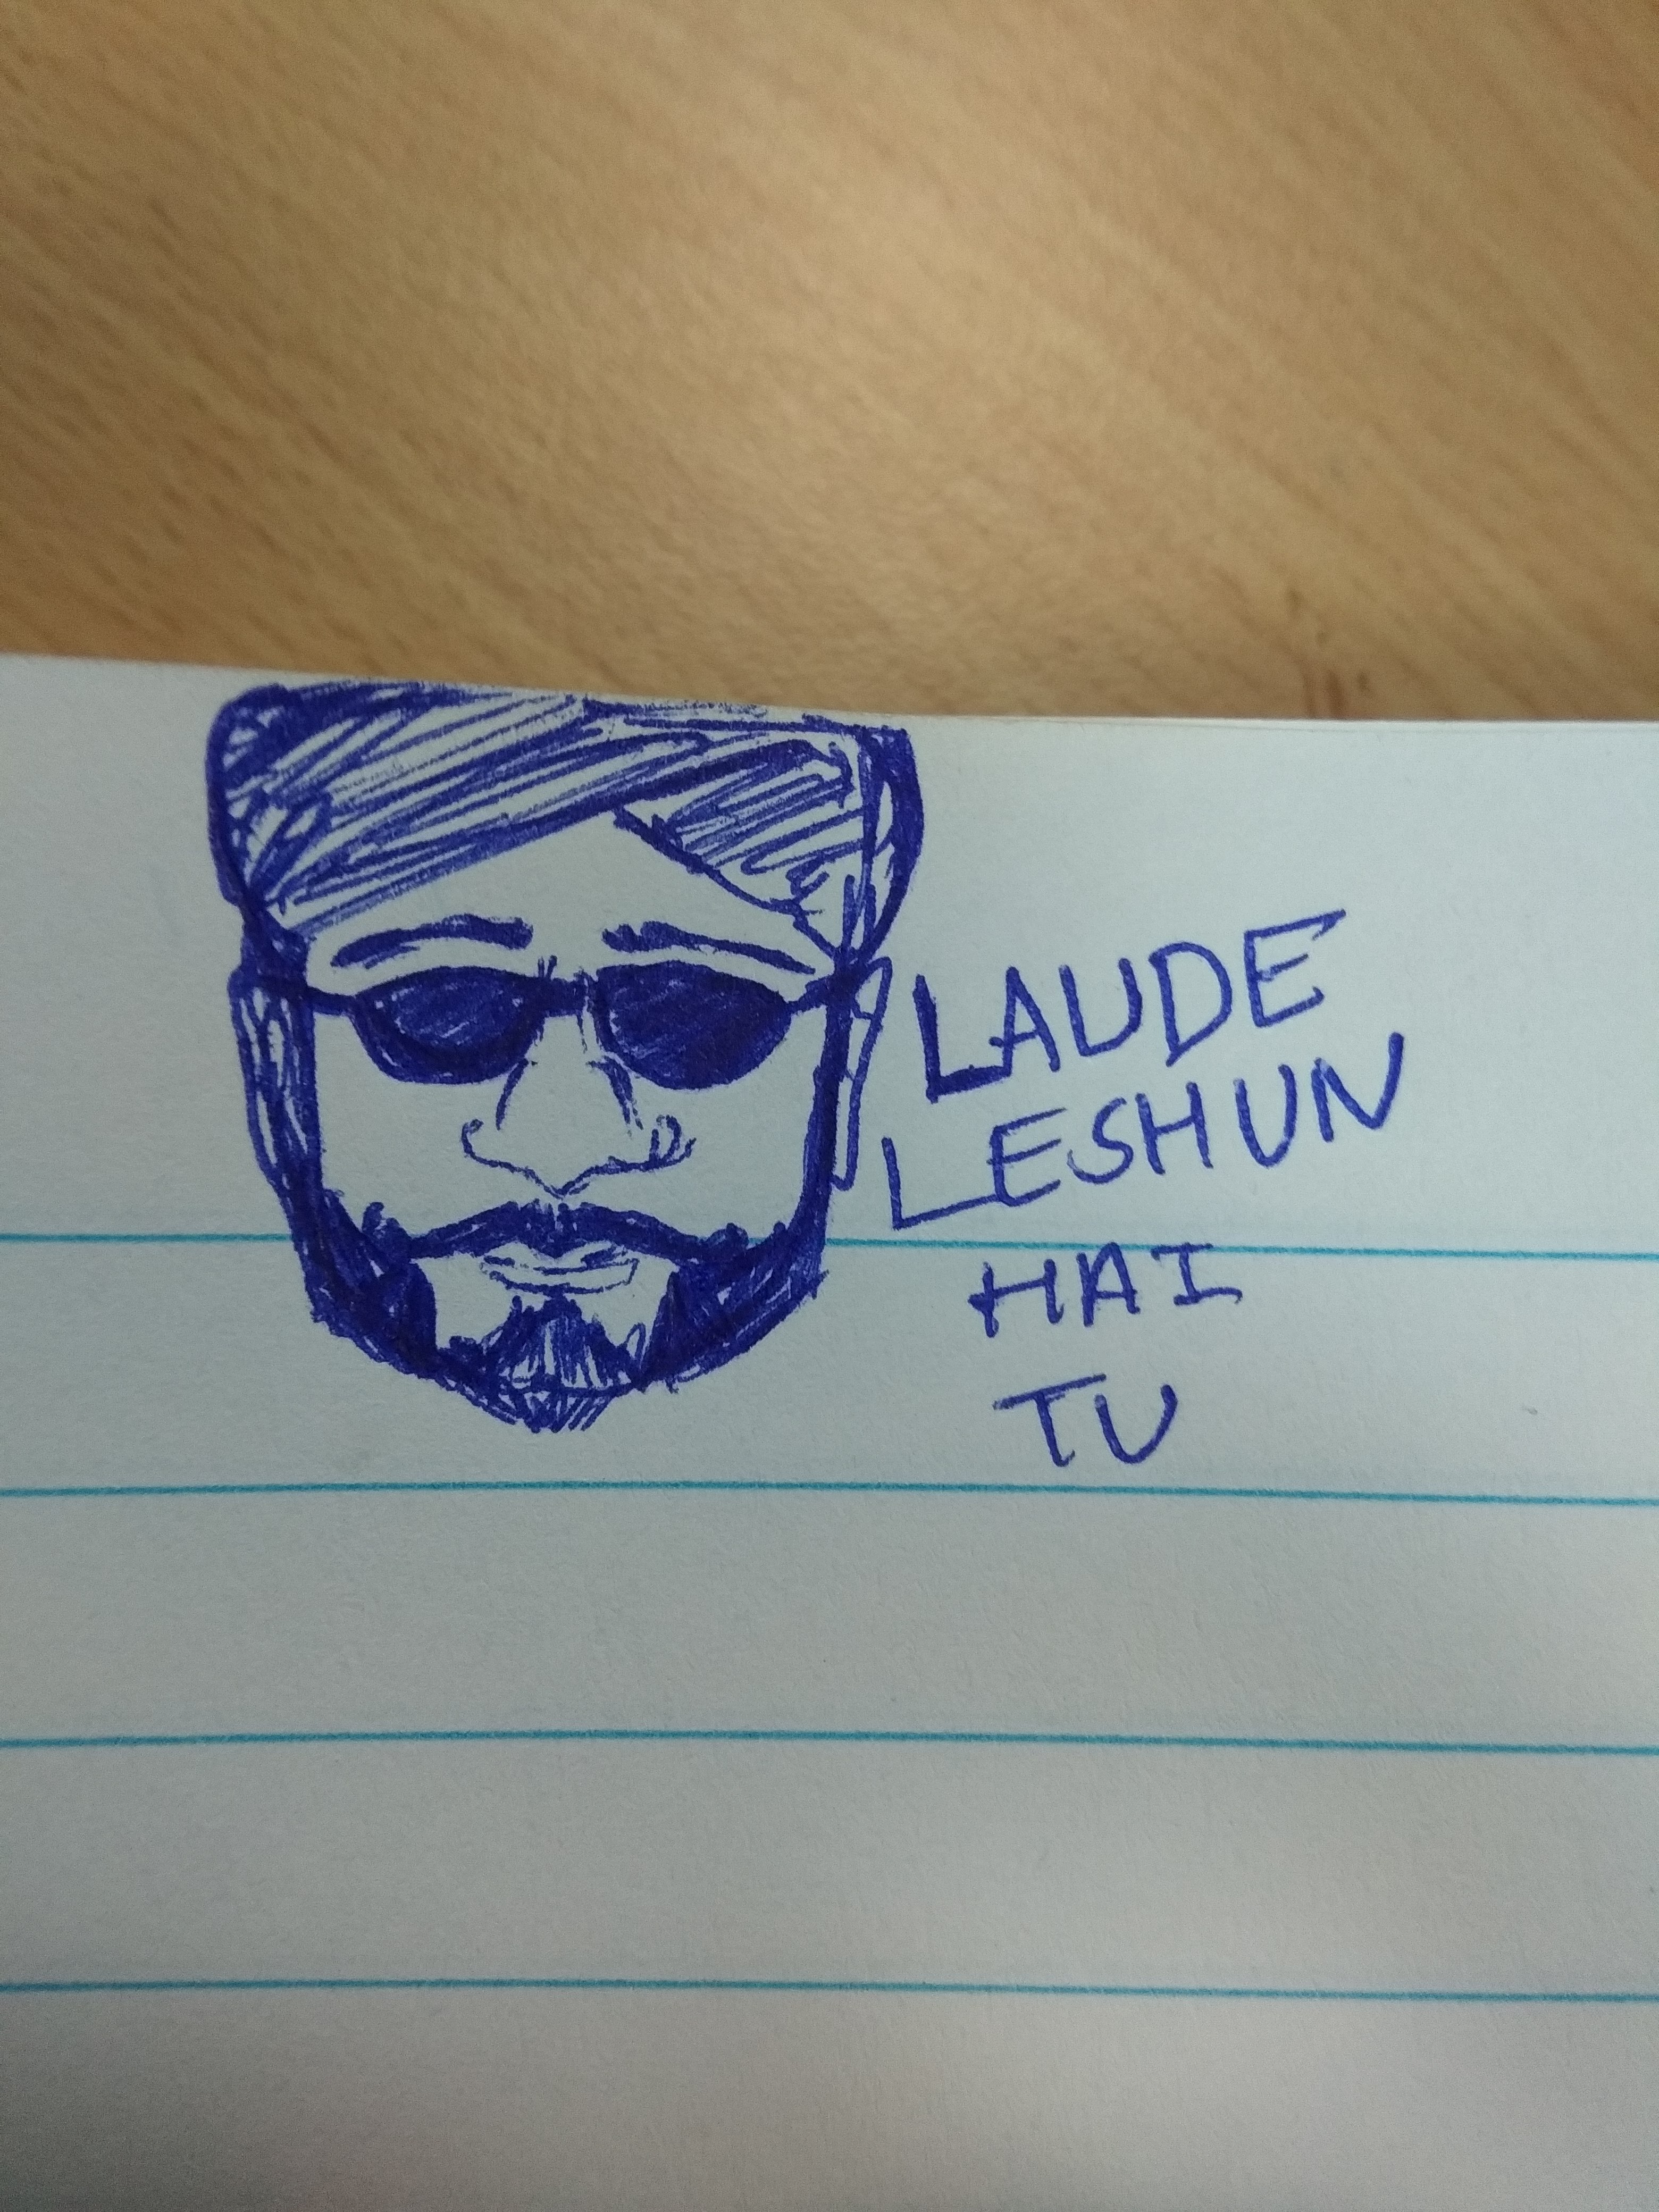 LAUDE
LESHUN
HAI
TU